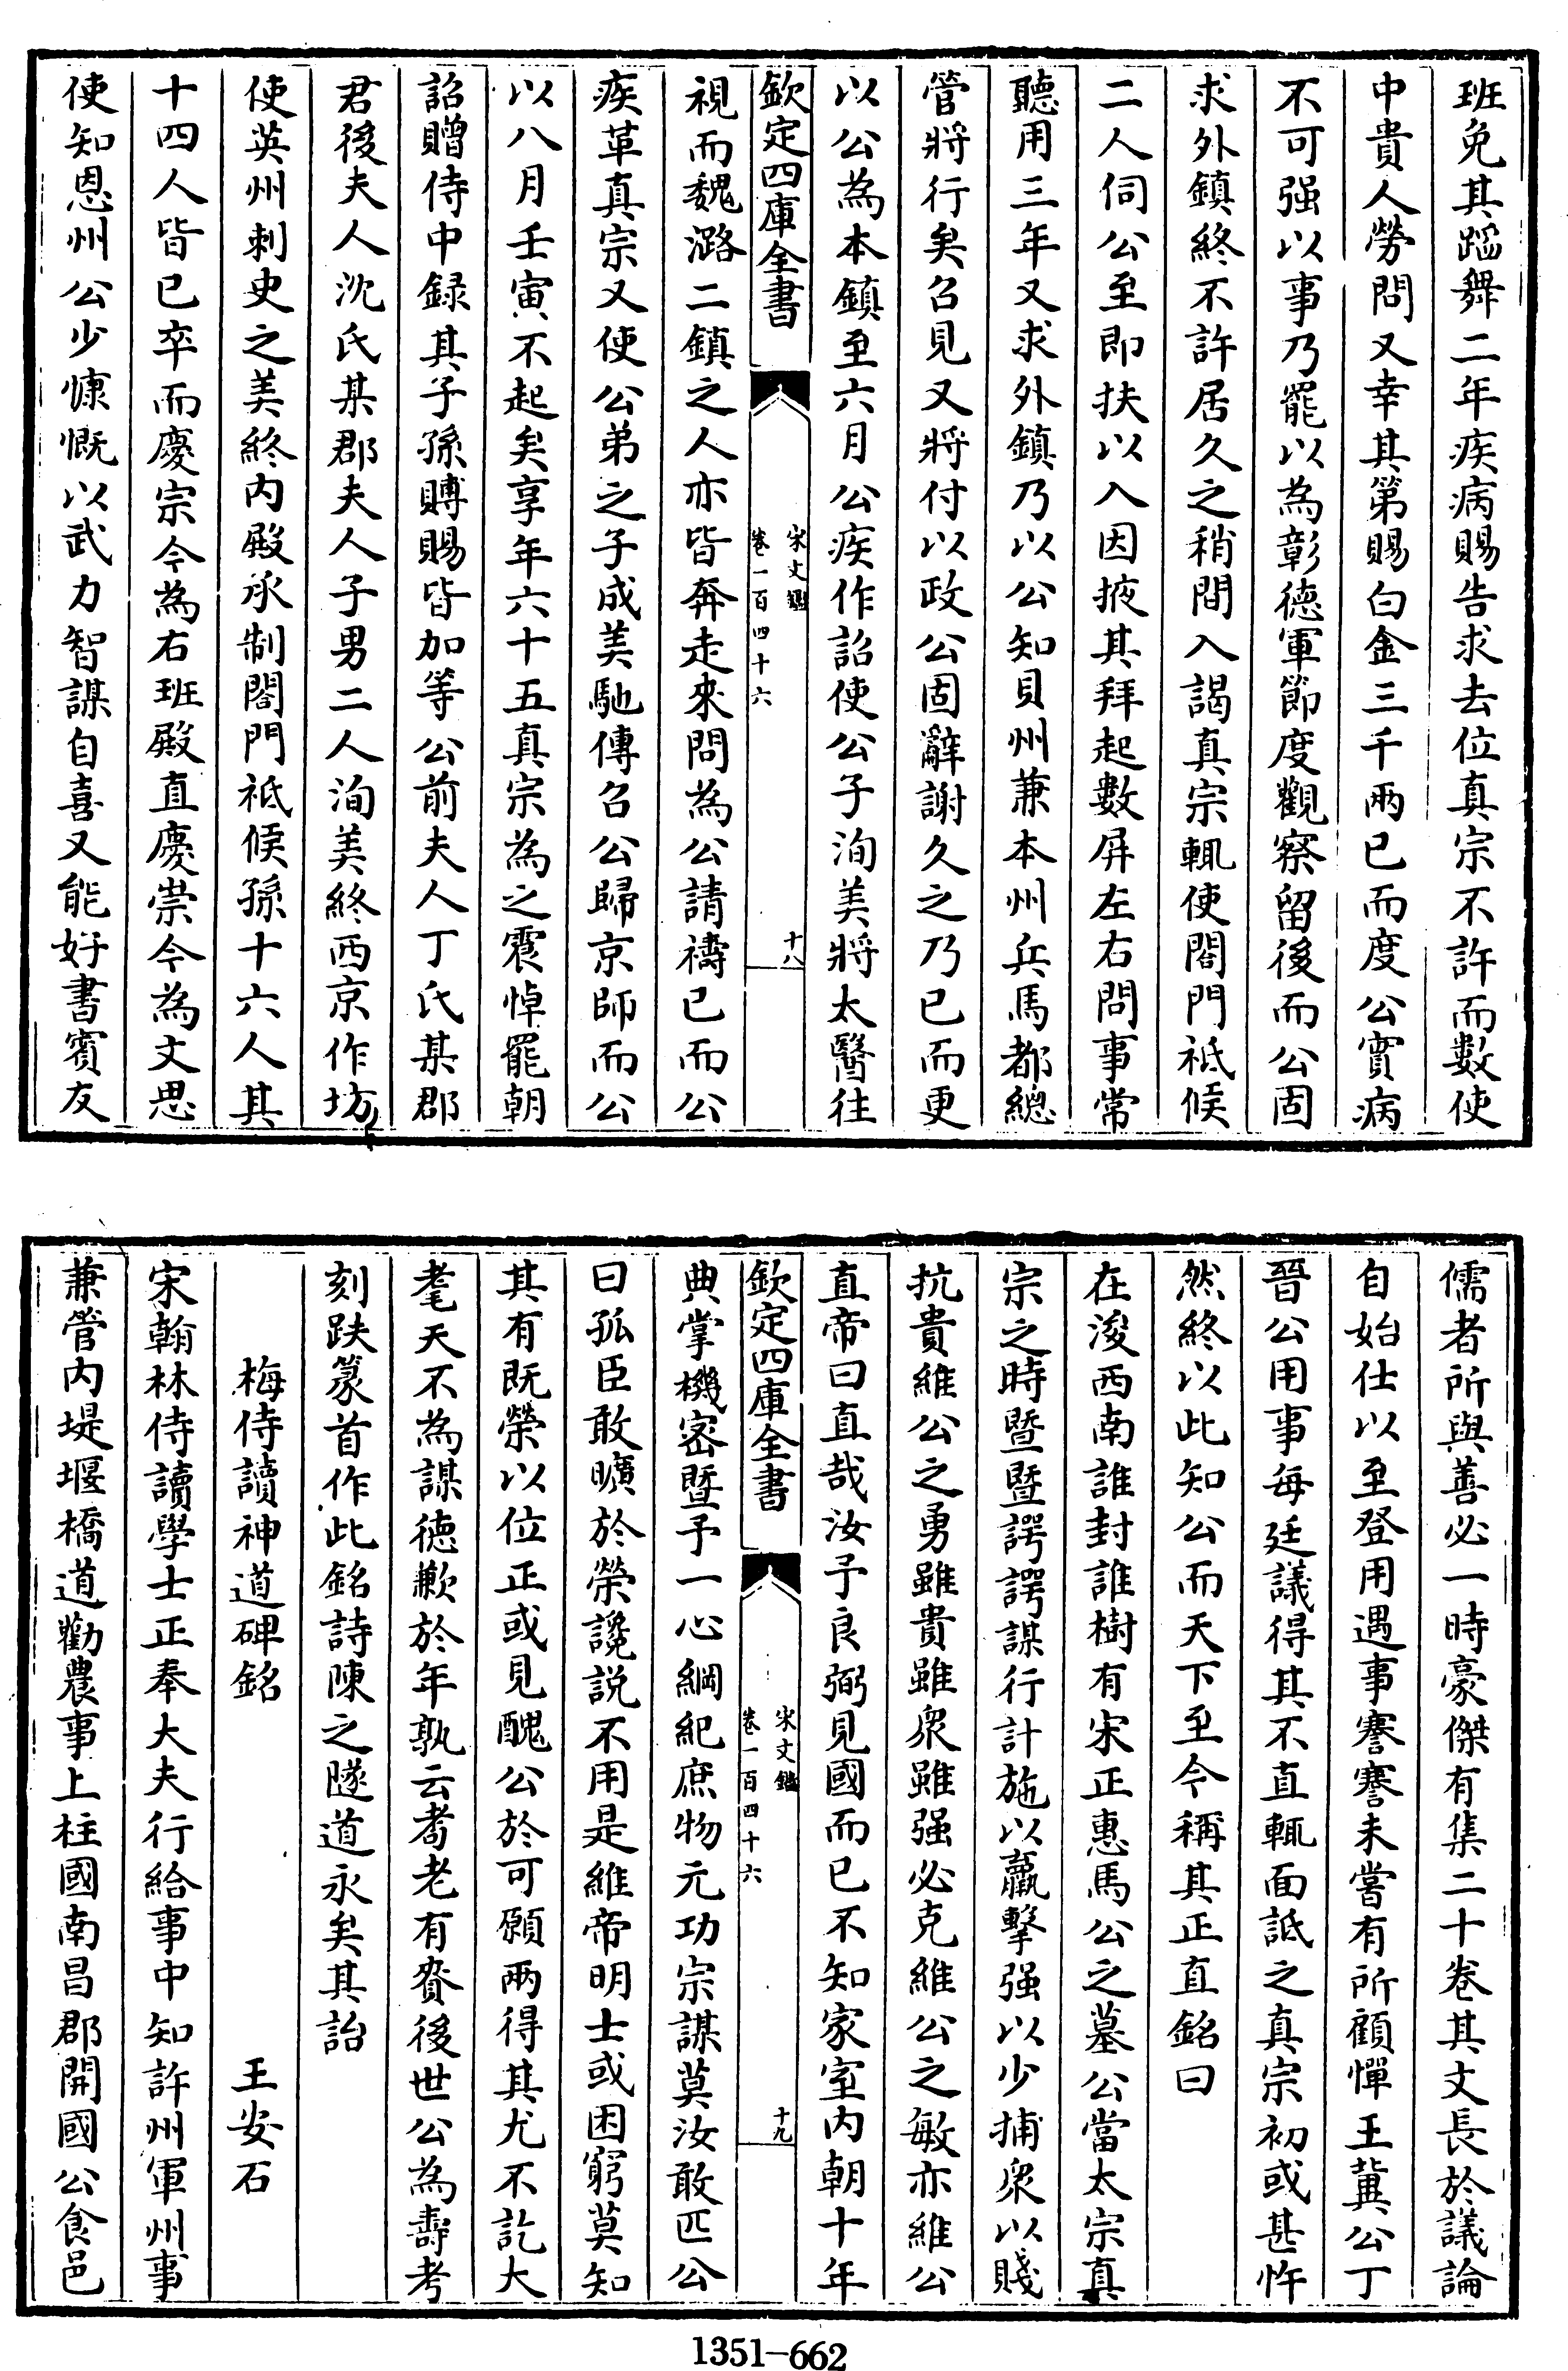 班免其蹈舞二年疾病賜告求去位真宗不許而數使
中貴人勞問又幸其第賜白金三千兩已而度公實病
不可强以事乃罷以為彰德軍節度觀察留後而公固
求外鎮終不許居久之稍間入謁真宗輒使閤門祗候
二人伺公至即扶以入因掖其拜起數屏左右問事常
聽用三年又求外鎮乃以公知貝州兼本州兵馬都總
管將行矣召見又將付以政公固辭謝久之乃已而更
以公為本鎮至六月公疾作詔使公子洵美將太醫往
欽定四庫全書
宋文鑑
卷一百四十六
十八
視而魏潞二鎮之人亦皆奔走來問為公請禱已而公
疾革真宗又使公弟之子成美馳傳召公歸京師而公
以八月壬寅不起矣享年六十五真宗為之震悼罷朝
詔贈侍中録其子孫賻賜皆加等公前夫人丁氏某郡
君後夫人沈氏某郡夫人子男二人洵美終西京作坊
使英州刺史之美終内殿承制閤門祗候孫十六人其
十四人皆已卒而慶宗今為右班殿直慶崇今為文思
使知恩州公少慷慨以武力智謀自喜又能好書賓友
儒者所與善必一時豪傑有集二十卷其文長於議論
自始仕以至登用遇事謇謇未嘗有所顧憚王冀公丁
晉公用事每廷議得其不直輒面詆之真宗初或甚忤
然終以此知公而天下至今稱其正直銘曰
在浚西南誰封誰樹有宋正惠馬公之墓公當太宗真
宗之時暨暨諤諤謀行計施以羸擊强以少捕衆以賤
抗貴維公之勇雖貴雖衆雖强必克維公之敏亦維公
直帝曰直哉汝予良弼見國而已不知家室内朝十年
欽定四庫全書
宋文鑑
卷一百四十六
十九
典掌機密暨予一心綱紀庶物元功宗謀莫汝敢匹公
曰孤臣敢曠於榮讒説不用是維帝明士或困窮莫知
其有既榮以位正或見醜公於可願兩得其尤不訖大
耄天不為謀德歉於年孰云耇老有賚後世公為壽考
刻趺篆首作此銘詩陳之隧道永矣其詒
梅侍讀神道碑銘　王安石
宋翰林侍讀學士正奉大夫行給事中知許州軍州事
兼管内堤堰橋道勸農事上柱國南昌郡開國公食邑
1351-662